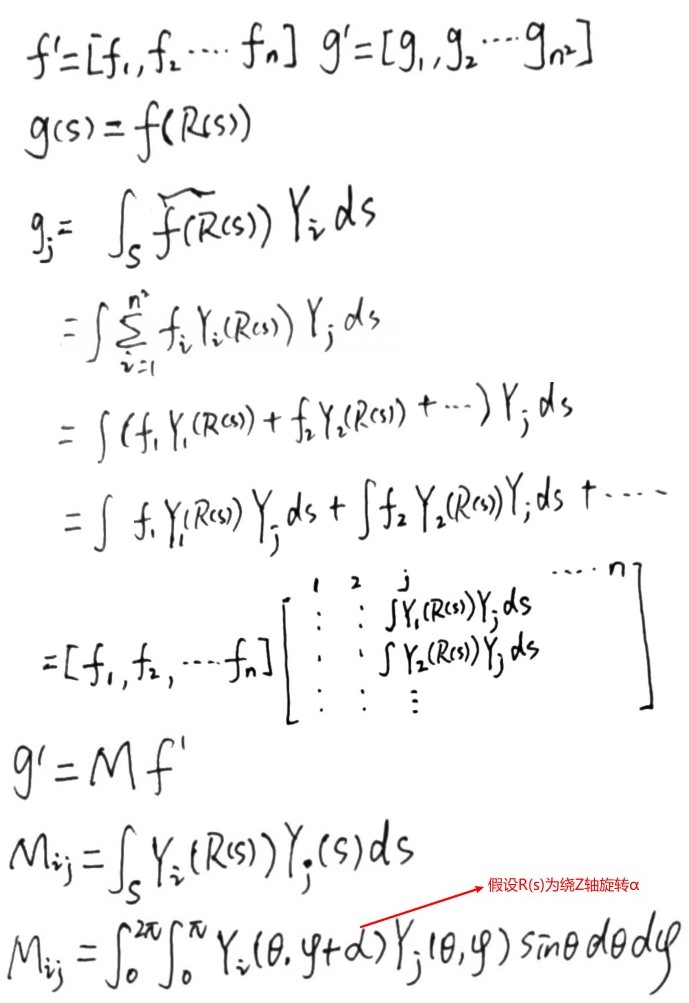 f'=[f₁,f₂ ···· fₙ] g'=[g₁,g₂ ···· gₙ²]
g(s)=f(R(s))
gⱼ= ∫ₛ f̃(R(s)) Yᵢ ds
=∫ Σᵢ₌₁ⁿ² fᵢYᵢ(R(s)) Yⱼ ds
= ∫(f₁Y₁(R(s))+f₂Y₂(R(s))+···)Yⱼ ds
=∫ f₁Y₁(R(s))Yⱼ ds+∫f₂Y₂(R(s))Yⱼ ds+····
1 2 j ···· n
∫Y₁(R(s))Yⱼ ds
=[f₁,f₂,····fₙ] [ ∫Y₂(R(s))Yⱼ ds ]
g'=Mf'
Mᵢⱼ=∫ₛ Yᵢ(R(s))Yⱼ(s)ds
假设R(s)为绕Z轴旋转α
Mᵢⱼ=∫₀²π∫₀π Yᵢ(θ,φ+α)Yⱼ(θ,φ)sinθdθdφ